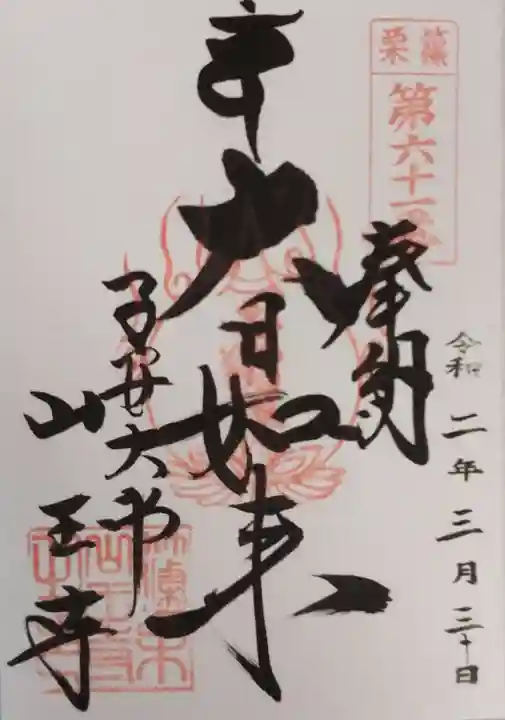 篠栗
第六十一番
奉納
令和二年三月三十日
大日如来
子安大師
山王寺